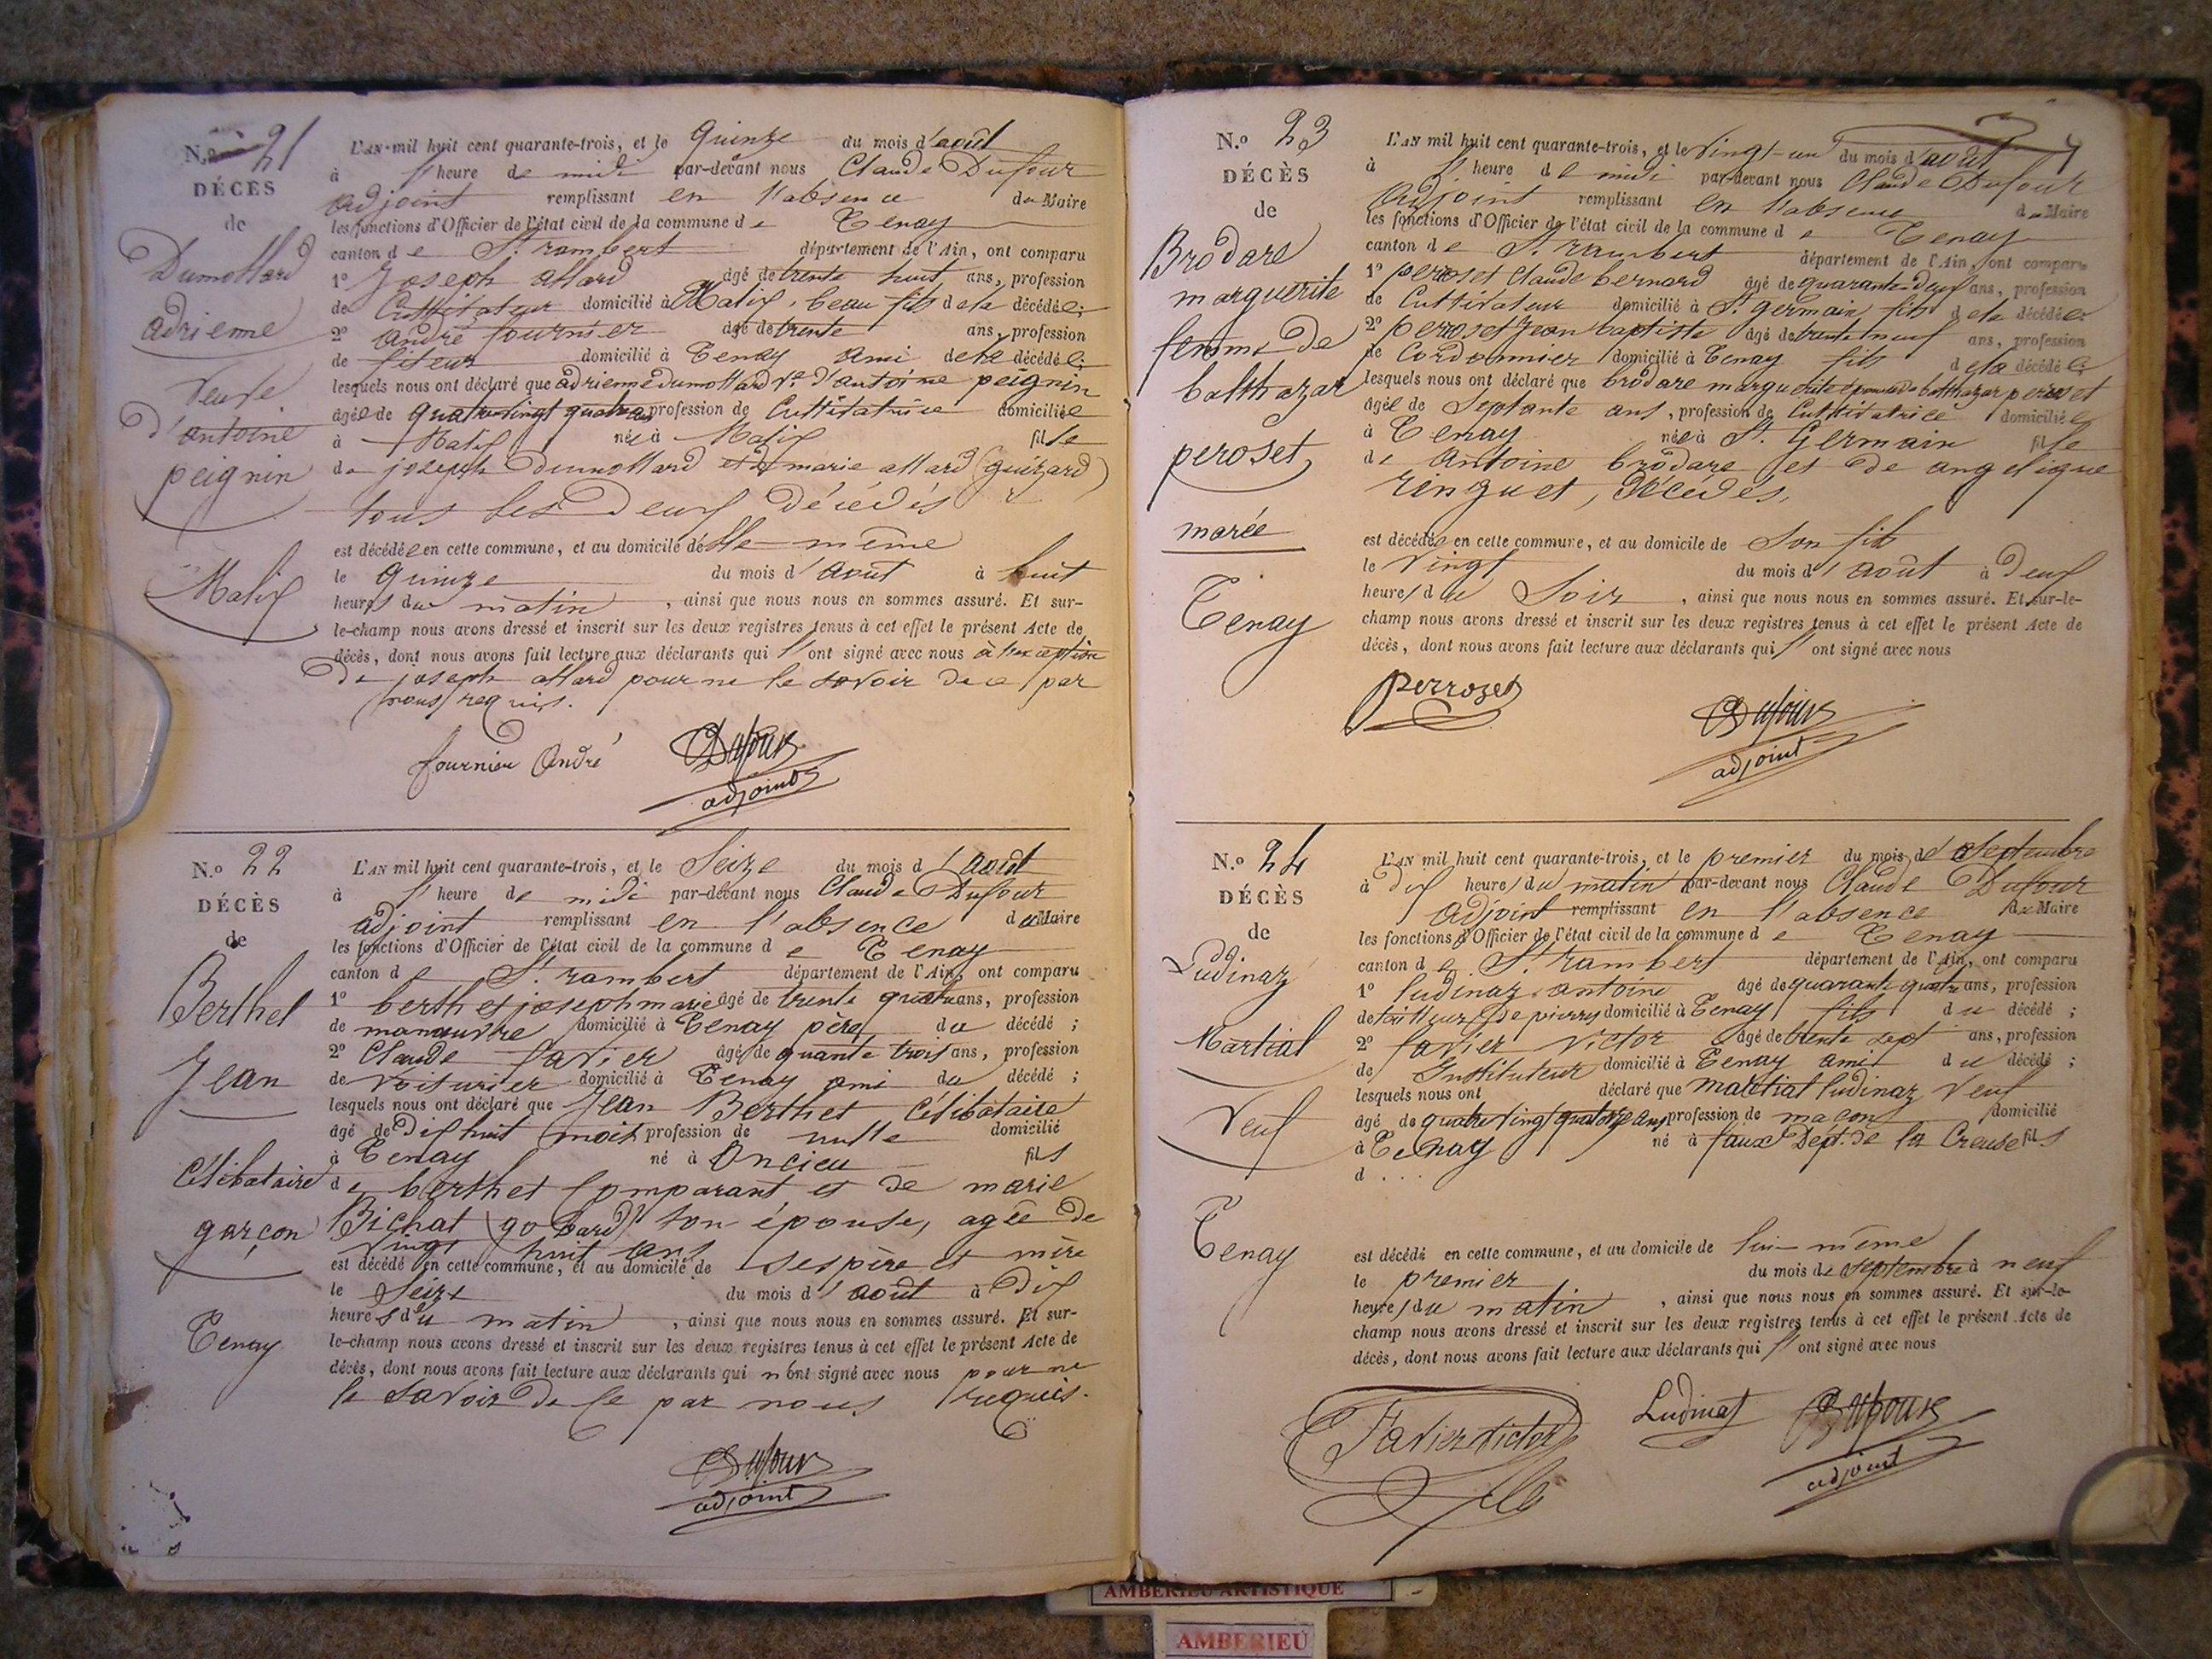 N.º 21
DÉCÈS
de
Dumollard
adrienne
Veuve
d'antoine
peignin
Malix
L'AN mil huit cent quarante-trois, et le quinze du mois d'août
à l'heure de midi par-devant nous Claude Dufour
adjoint remplissant en l'absence du Maire
les fonctions d'Officier de l'état civil de la commune de Tenay
canton de St. rambert département de l'Ain, ont comparu
1º Joseph allard âgé de trente huit ans, profession
de Cultivateur domicilié à Malix, beau fils dela décédée;
2º andré fournier âgé de trente ans, profession
de fiteur domicilié à Tenay ami dela décédée;
lesquels nous ont déclaré que adrienne dumollard Ve. d'antoine peignin
âgée de quatre vingt quatre ans profession de Cultivatrice domiciliée
à Malix née à Malix fille
de joseph dumollard et de marie allard (guizard)
tous les deux décédés
est décédée en cette commune, et au domicile d'elle même
le quinze du mois d'août à huit
heures du matin, ainsi que nous nous en sommes assuré. Et sur-
le-champ nous avons dressé et inscrit sur les deux registres tenus à cet effet le présent Acte de
décès, dont nous avons fait lecture aux déclarants qui l'ont signé avec nous à l'exception
de joseph allard pour ne le savoir de ce par
nous requis.
fournier André
CDufour
adjoint
N.º 22
DÉCÈS
de
Berthet
Jean
Célibataire
garçon
Tenay
L'AN mil huit cent quarante-trois, et le Seize du mois d'août
à l'heure de midi par-devant nous Claude Dufour
adjoint remplissant en l'absence du Maire
les fonctions d'Officier de l'état civil de la commune de Tenay
canton de St. rambert département de l'Ain, ont comparu
1º berthet joseph marie âgé de trente quatre ans, profession
de manœuvre domicilié à Tenay père du décédé;
2º Claude favier âgé de quarante trois ans, profession
de voiturier domicilié à Tenay ami du décédé;
lesquels nous ont déclaré que Jean Berthet Célibataire
âgé de dix huit mois profession de nulle domicilié
à Tenay né à Oncieu fils
de berthet Comparant et de marie
Bichat (gobard) son épouse, agée de
vingt huit ans
est décédé en cette commune, et au domicile de ses père et mère
le Seize du mois d'août à dix
heures du matin, ainsi que nous nous en sommes assuré. Et sur-
le-champ nous avons dressé et inscrit sur les deux registres tenus à cet effet le présent Acte de
décès, dont nous avons fait lecture aux déclarants qui n'ont signé avec nous pour ne
le savoir de ce par nous requis.
CDufour
adjoint
N.º 23
DÉCÈS
de
Brodare
marguerite
femme de
balthazar
peroset
mariée
Tenay
L'AN mil huit cent quarante-trois, et le vingt-un du mois d'août
à l'heure de midi par-devant nous Claude Dufour
adjoint remplissant en l'absence du Maire
les fonctions d'Officier de l'état civil de la commune de Tenay
canton de St. rambert département de l'Ain, ont comparu
1º peroset Claude bernard âgé de quarante-deux ans, profession
de Cultivateur domicilié à St. germain fils dela décédée;
2º peroset jean baptiste âgé de trente neuf ans, profession
de Cordonnier domicilié à Tenay fils dela décédée;
lesquels nous ont déclaré que brodare marguerite épouse de balthazar peroset
âgée de Septante ans, profession de Cultivatrice domiciliée
à Tenay née à St. Germain fille
de antoine brodare et de angelique
ringuet, décédés,
est décédée en cette commune, et au domicile de son fils
le vingt du mois d'août à deux
heures du Soir, ainsi que nous nous en sommes assuré. Et sur-le-
champ nous avons dressé et inscrit sur les deux registres tenus à cet effet le présent Acte de
décès, dont nous avons fait lecture aux déclarants qui l'ont signé avec nous
perrozet
CDufour
adjoint
N.º 24
DÉCÈS
de
Ludinaz
Martial
Veuf
Tenay
L'AN mil huit cent quarante-trois, et le premier du mois de Septembre
à dix heures du matin par-devant nous Claude Dufour
adjoint remplissant en l'absence du Maire
les fonctions d'Officier de l'état civil de la commune de Tenay
canton de St. rambert département de l'Ain, ont comparu
1º ludinaz antoine âgé de quarante quatre ans, profession
de tailleur de pierres domicilié à Tenay fils du décédé;
2º favier victor âgé de trente sept ans, profession
de Instituteur domicilié à Tenay ami du décédé;
lesquels nous ont déclaré que martial ludinaz Veuf
âgé de quatre vingt quatorze ans profession de maçon domicilié
à Tenay né à faux Dépt. de la Creuse fils
d . . .
est décédé en cette commune, et au domicile de lui-même
le premier du mois de Septembre à neuf
heures du matin, ainsi que nous nous en sommes assuré. Et sur-le-
champ nous avons dressé et inscrit sur les deux registres tenus à cet effet le présent Acte de
décès, dont nous avons fait lecture aux déclarants qui l'ont signé avec nous
Favier Victor
Ludinat
CDufour
adjoint
AMBERIEU ARTISTIQUE
AMBERIEU